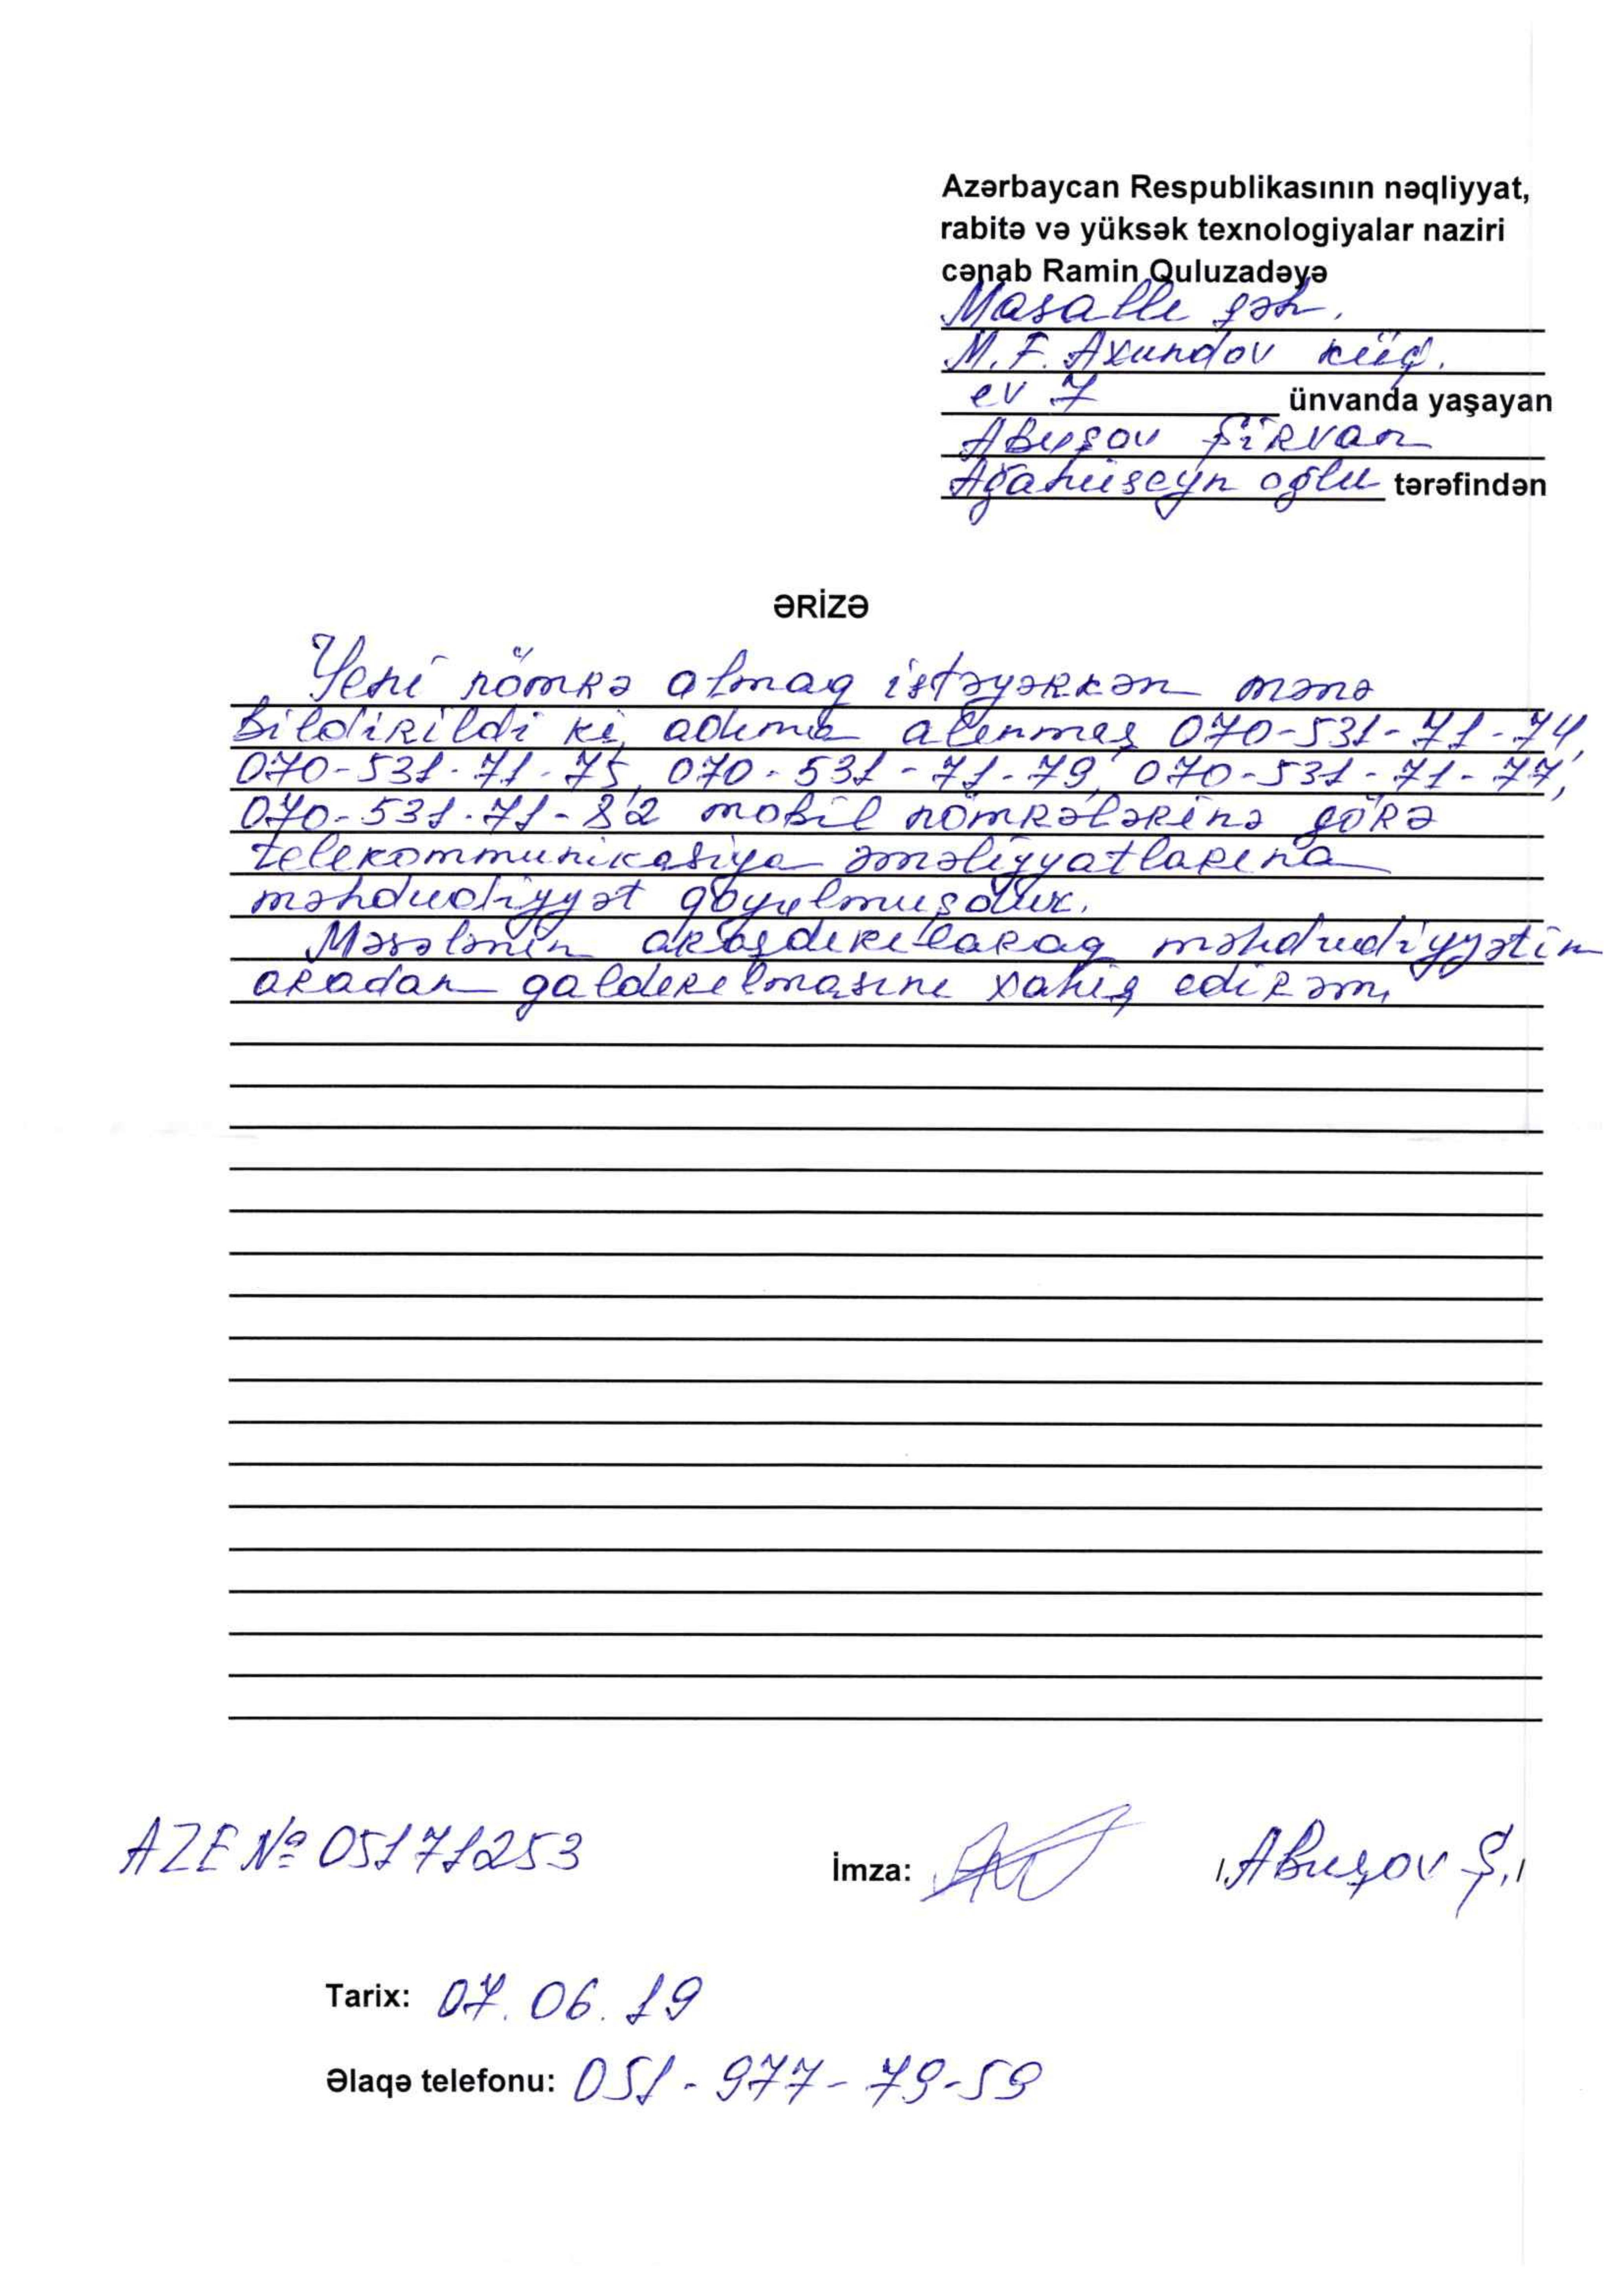 Azərbaycan Respublikasının nəqliyyat,
rabitə və yüksək texnologiyalar naziri
cənab Ramin Quluzadəyə
Masallı şəh.
M.F. Axundov küç.
ev 7 ünvanda yaşayan
Abışov Şirvan
Ağahüseyn oğlu tərəfindən
ƏRİZƏ
Yeni nömrə almaq istəyərkən mənə
bildirildi ki, adıma alınmış 070-531-71-74,
070-531-71-75, 070-531-71-79, 070-531-71-77,
070-531-71-82 mobil nömrələrinə görə
telekommunikasiya əməliyyatlarına
məhdudiyyət qoyulmuşdur.
Məsələnin araşdırılaraq məhdudiyyətin
aradan qaldırılmasını xahiş edirəm.
AZE № 05171253 İmza: /Abışov Ş./
Tarix: 07.06.19
Əlaqə telefonu: 051-977-79-59